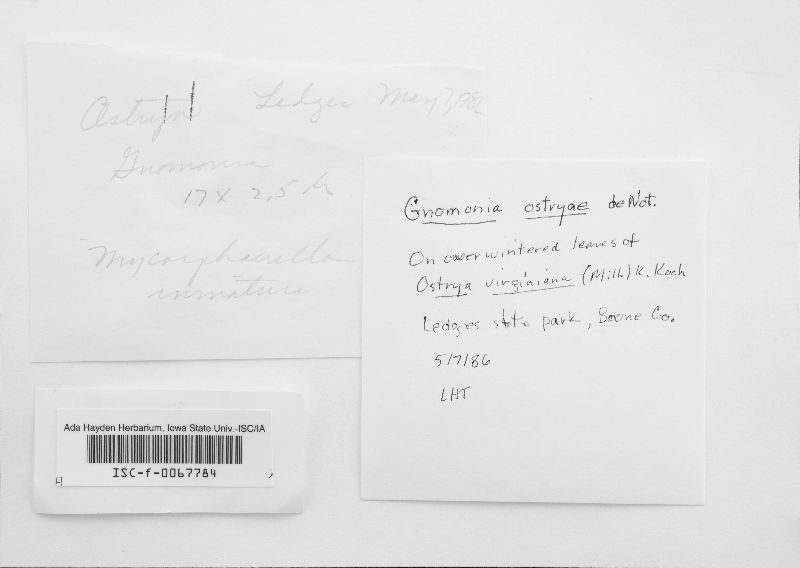 Ostrya Ledges May 7, 1986
Gnomonia
17 x 2,5 µ
Mycosphaerella
immature
Gnomonia ostryae deNot.
On overwintered leaves of
Ostrya virginiana (Mill.) K. Koch
Ledges state park, Boone Co.
5/7/86
LHT
Ada Hayden Herbarium, Iowa State Univ.-ISC/IA
ISC-f-0067784